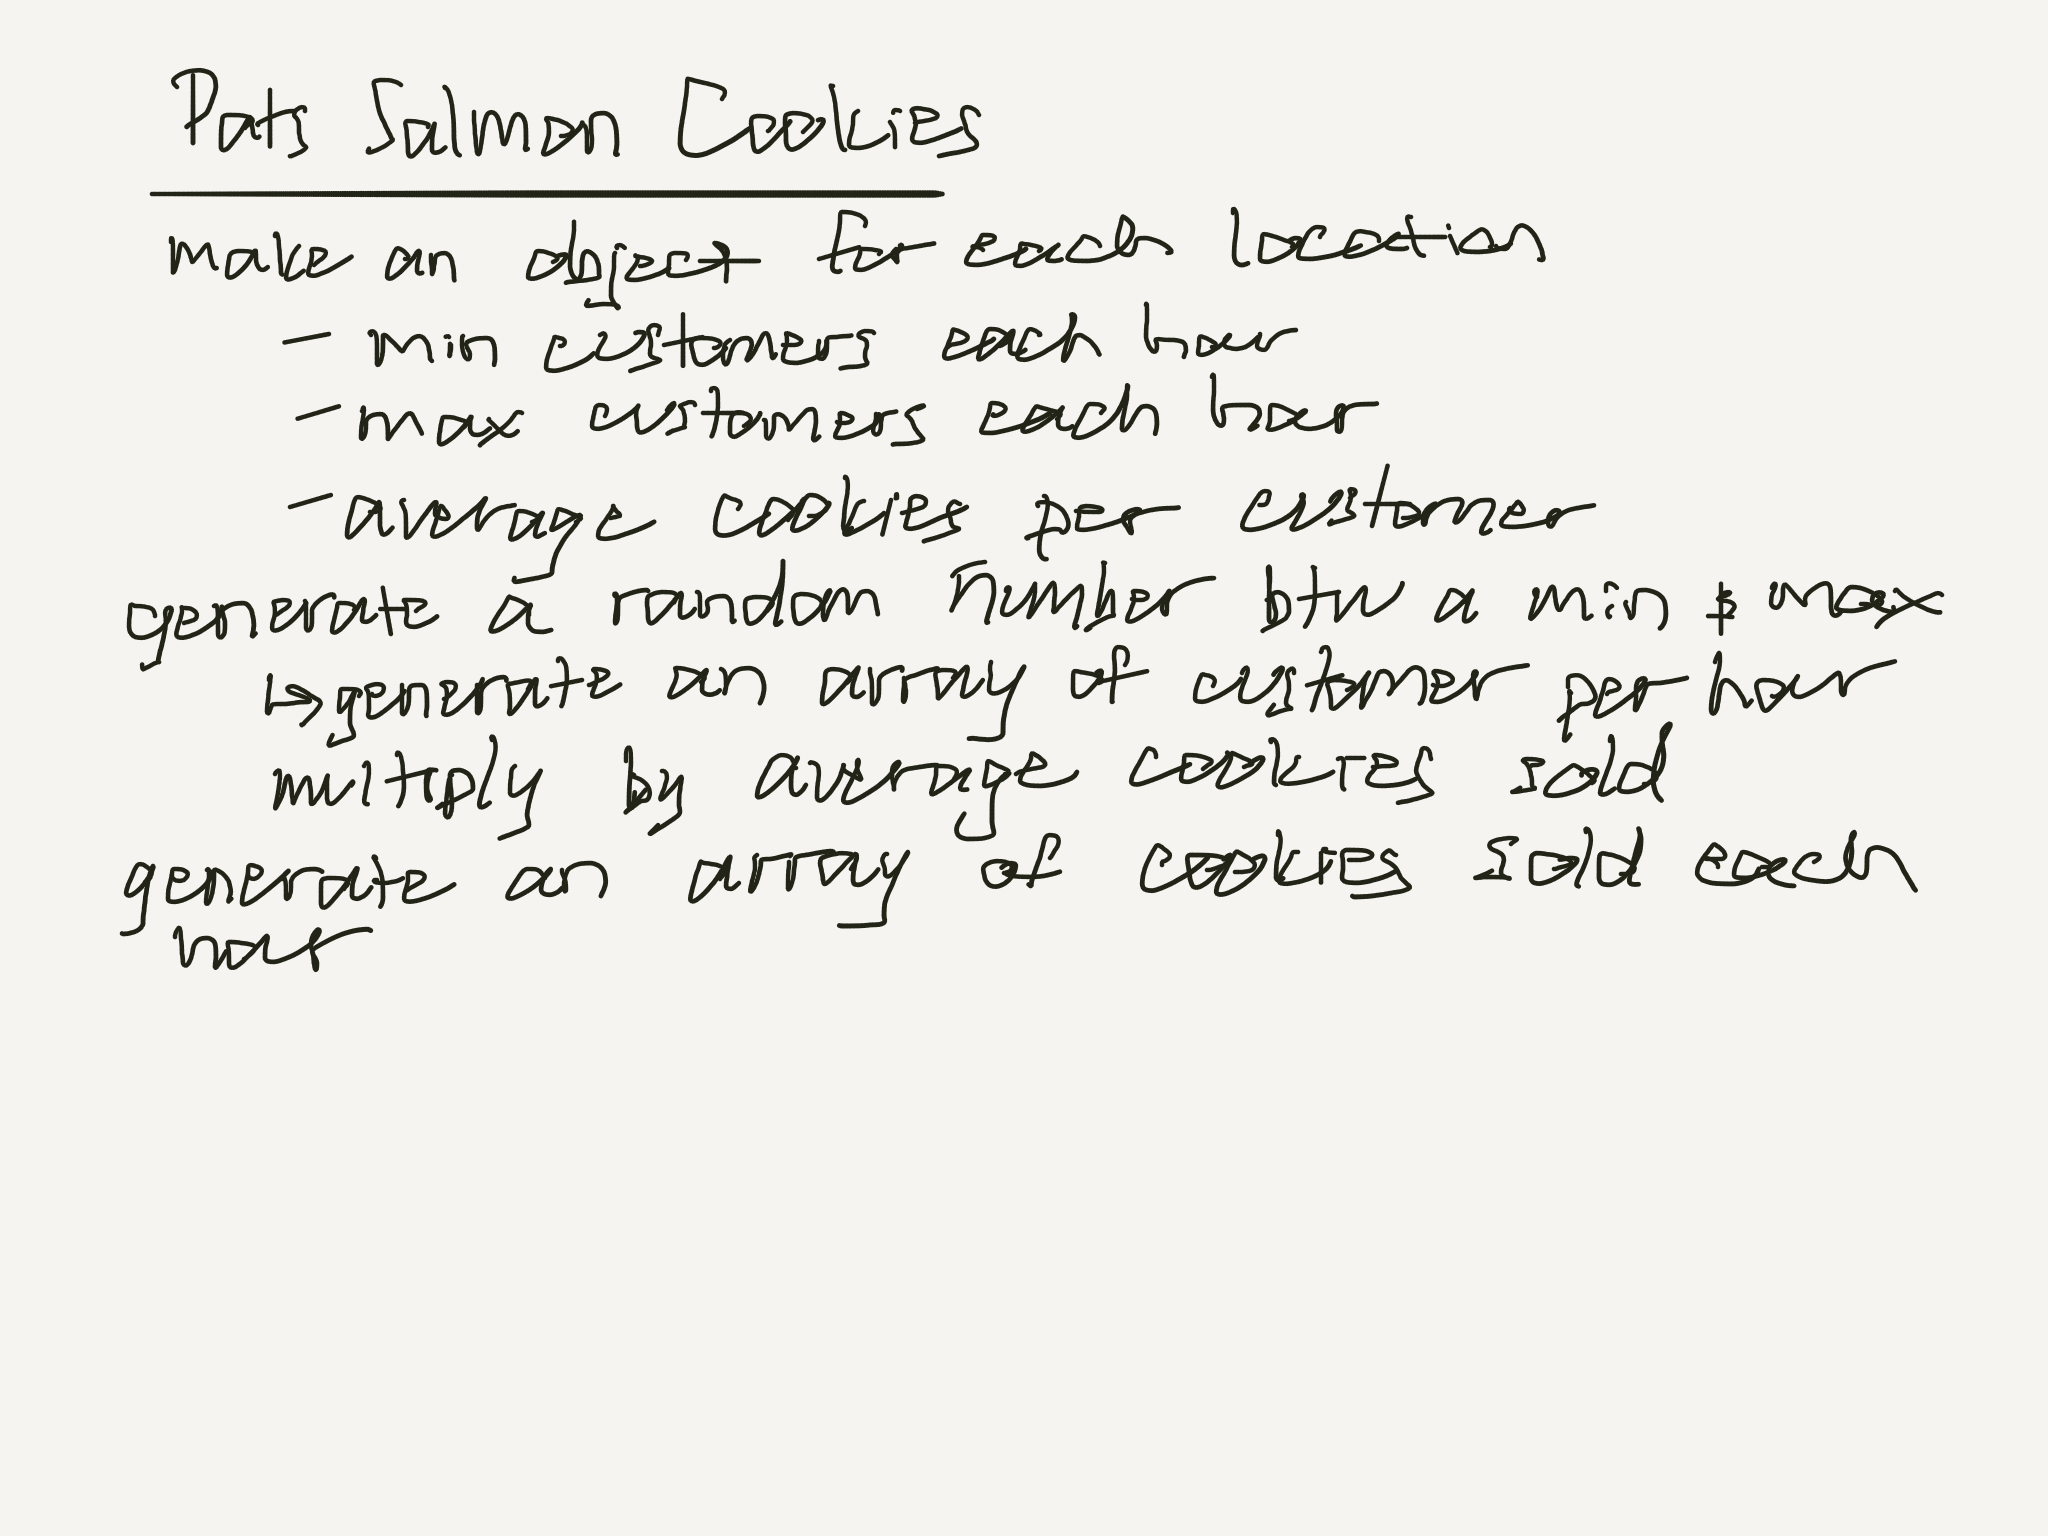 Pats Salmon Cookies
make an object for each location
- min customers each hour
- max customers each hour
- average cookies per customer
generate a random number btw a min & max
↳ generate an array of customer per hour
multiply by average cookies sold
generate an array of cookies sold each
hour